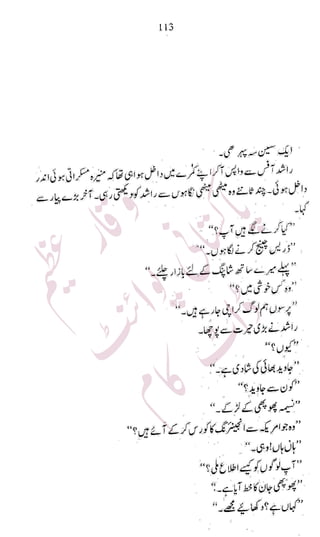 113
ایک حسین سہ پہر تھی۔
راشد آفس سے واپس آ کر اپنے کمرے میں داخل ہوا ہی تھا کہ منیرہ مسکراتی ہوئی اندر
داخل ہوئی۔ چند ثانئے وہ میٹھی میٹھی نگاہوں سے راشد کو دیکھتی رہی۔ آخر بڑے پیار سے
کہا۔
’’کیا کرنے لگے ہیں آپ؟‘‘
’’ڈریس چینج کرنے لگا ہوں۔‘‘
’’پہلے میرے ساتھ شاپنگ کے لئے بازار چلئے۔‘‘
’’وہ کس خوشی میں؟‘‘
’’پرسوں ہم لوگ کراچی جا رہے ہیں۔‘‘
راشد نے بڑی حیرت سے پوچھا۔
’’کیوں؟‘‘
’’جاوید بھائی کی شادی ہے۔‘‘
’’کون سے جاوید؟‘‘
’’نسیمہ پھوپھی کے لڑکے۔‘‘
’’وہ جو امریکہ سے انجینئرنگ کا کورس کر کے آئے ہیں؟‘‘
’’ہاں ہاں! وہی۔‘‘
’’آپ لوگوں کو کیسے اطلاع ملی؟‘‘
’’پھوپھی جان کا خط آیا ہے۔‘‘
’’کہاں ہے؟ دکھائیے مجھے۔‘‘
پاکستانی پوائنٹ
ڈاٹ کام
وقار عظیم